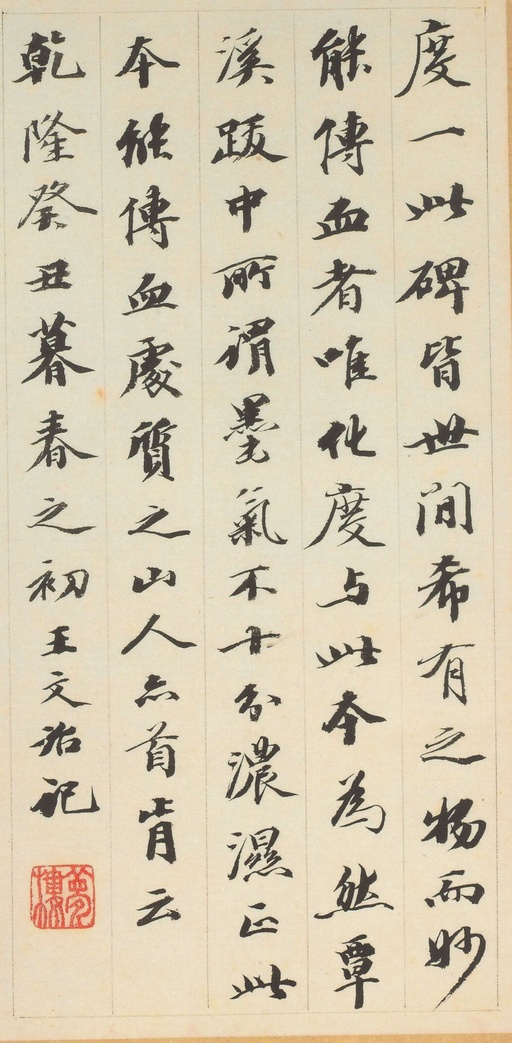 度一此碑皆世間希有之物而妙
能傳血者唯化度与此本為然覃
溪跋中所謂墨氣不十分濃濕正此
本能傳血處質之山人亦首肯云
乾隆癸丑暮春之初王文治記
夢樓